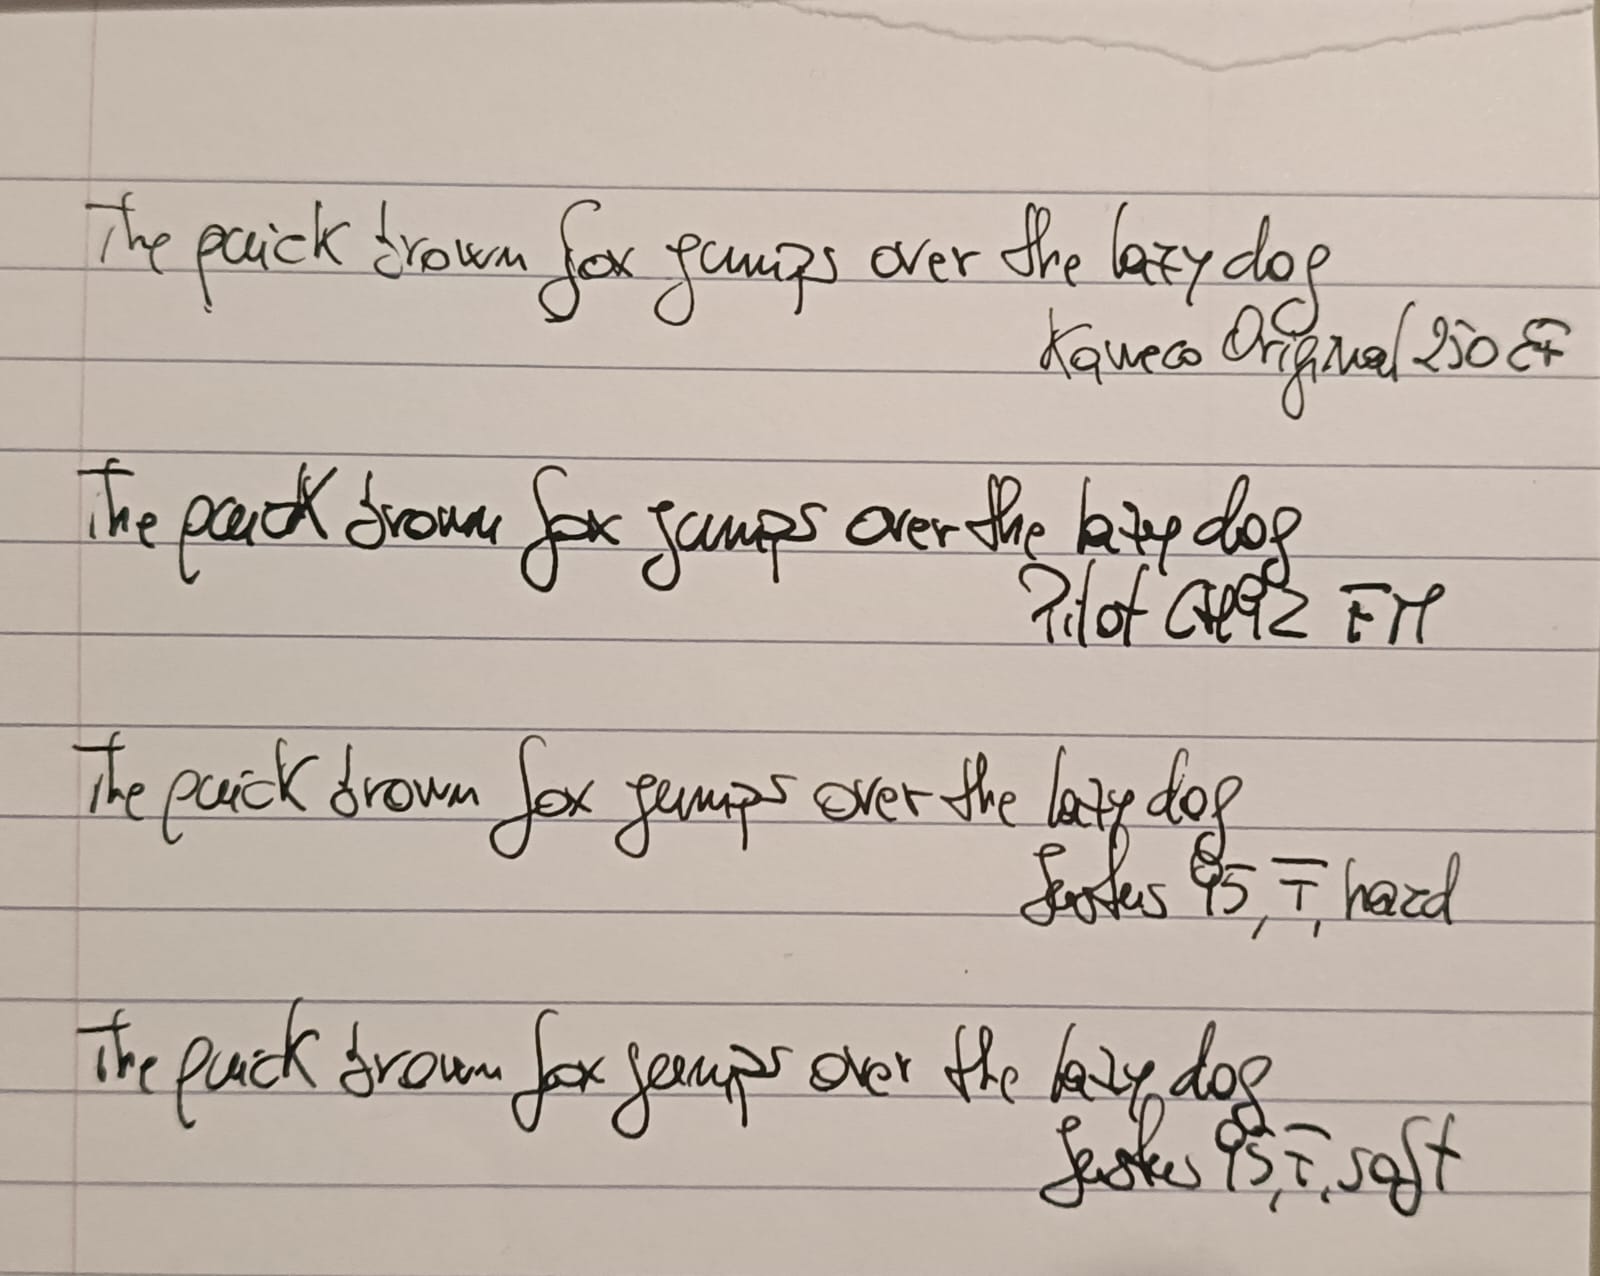 The quick brown fox jumps over the lazy dog
Kaweco Original 250 EF
The quick brown fox jumps over the lazy dog
Pilot CH92 FM
The quick brown fox jumps over the lazy dog
Justus 95, F, hard
The quick brown fox jumps over the lazy dog
Justus 95, F, soft